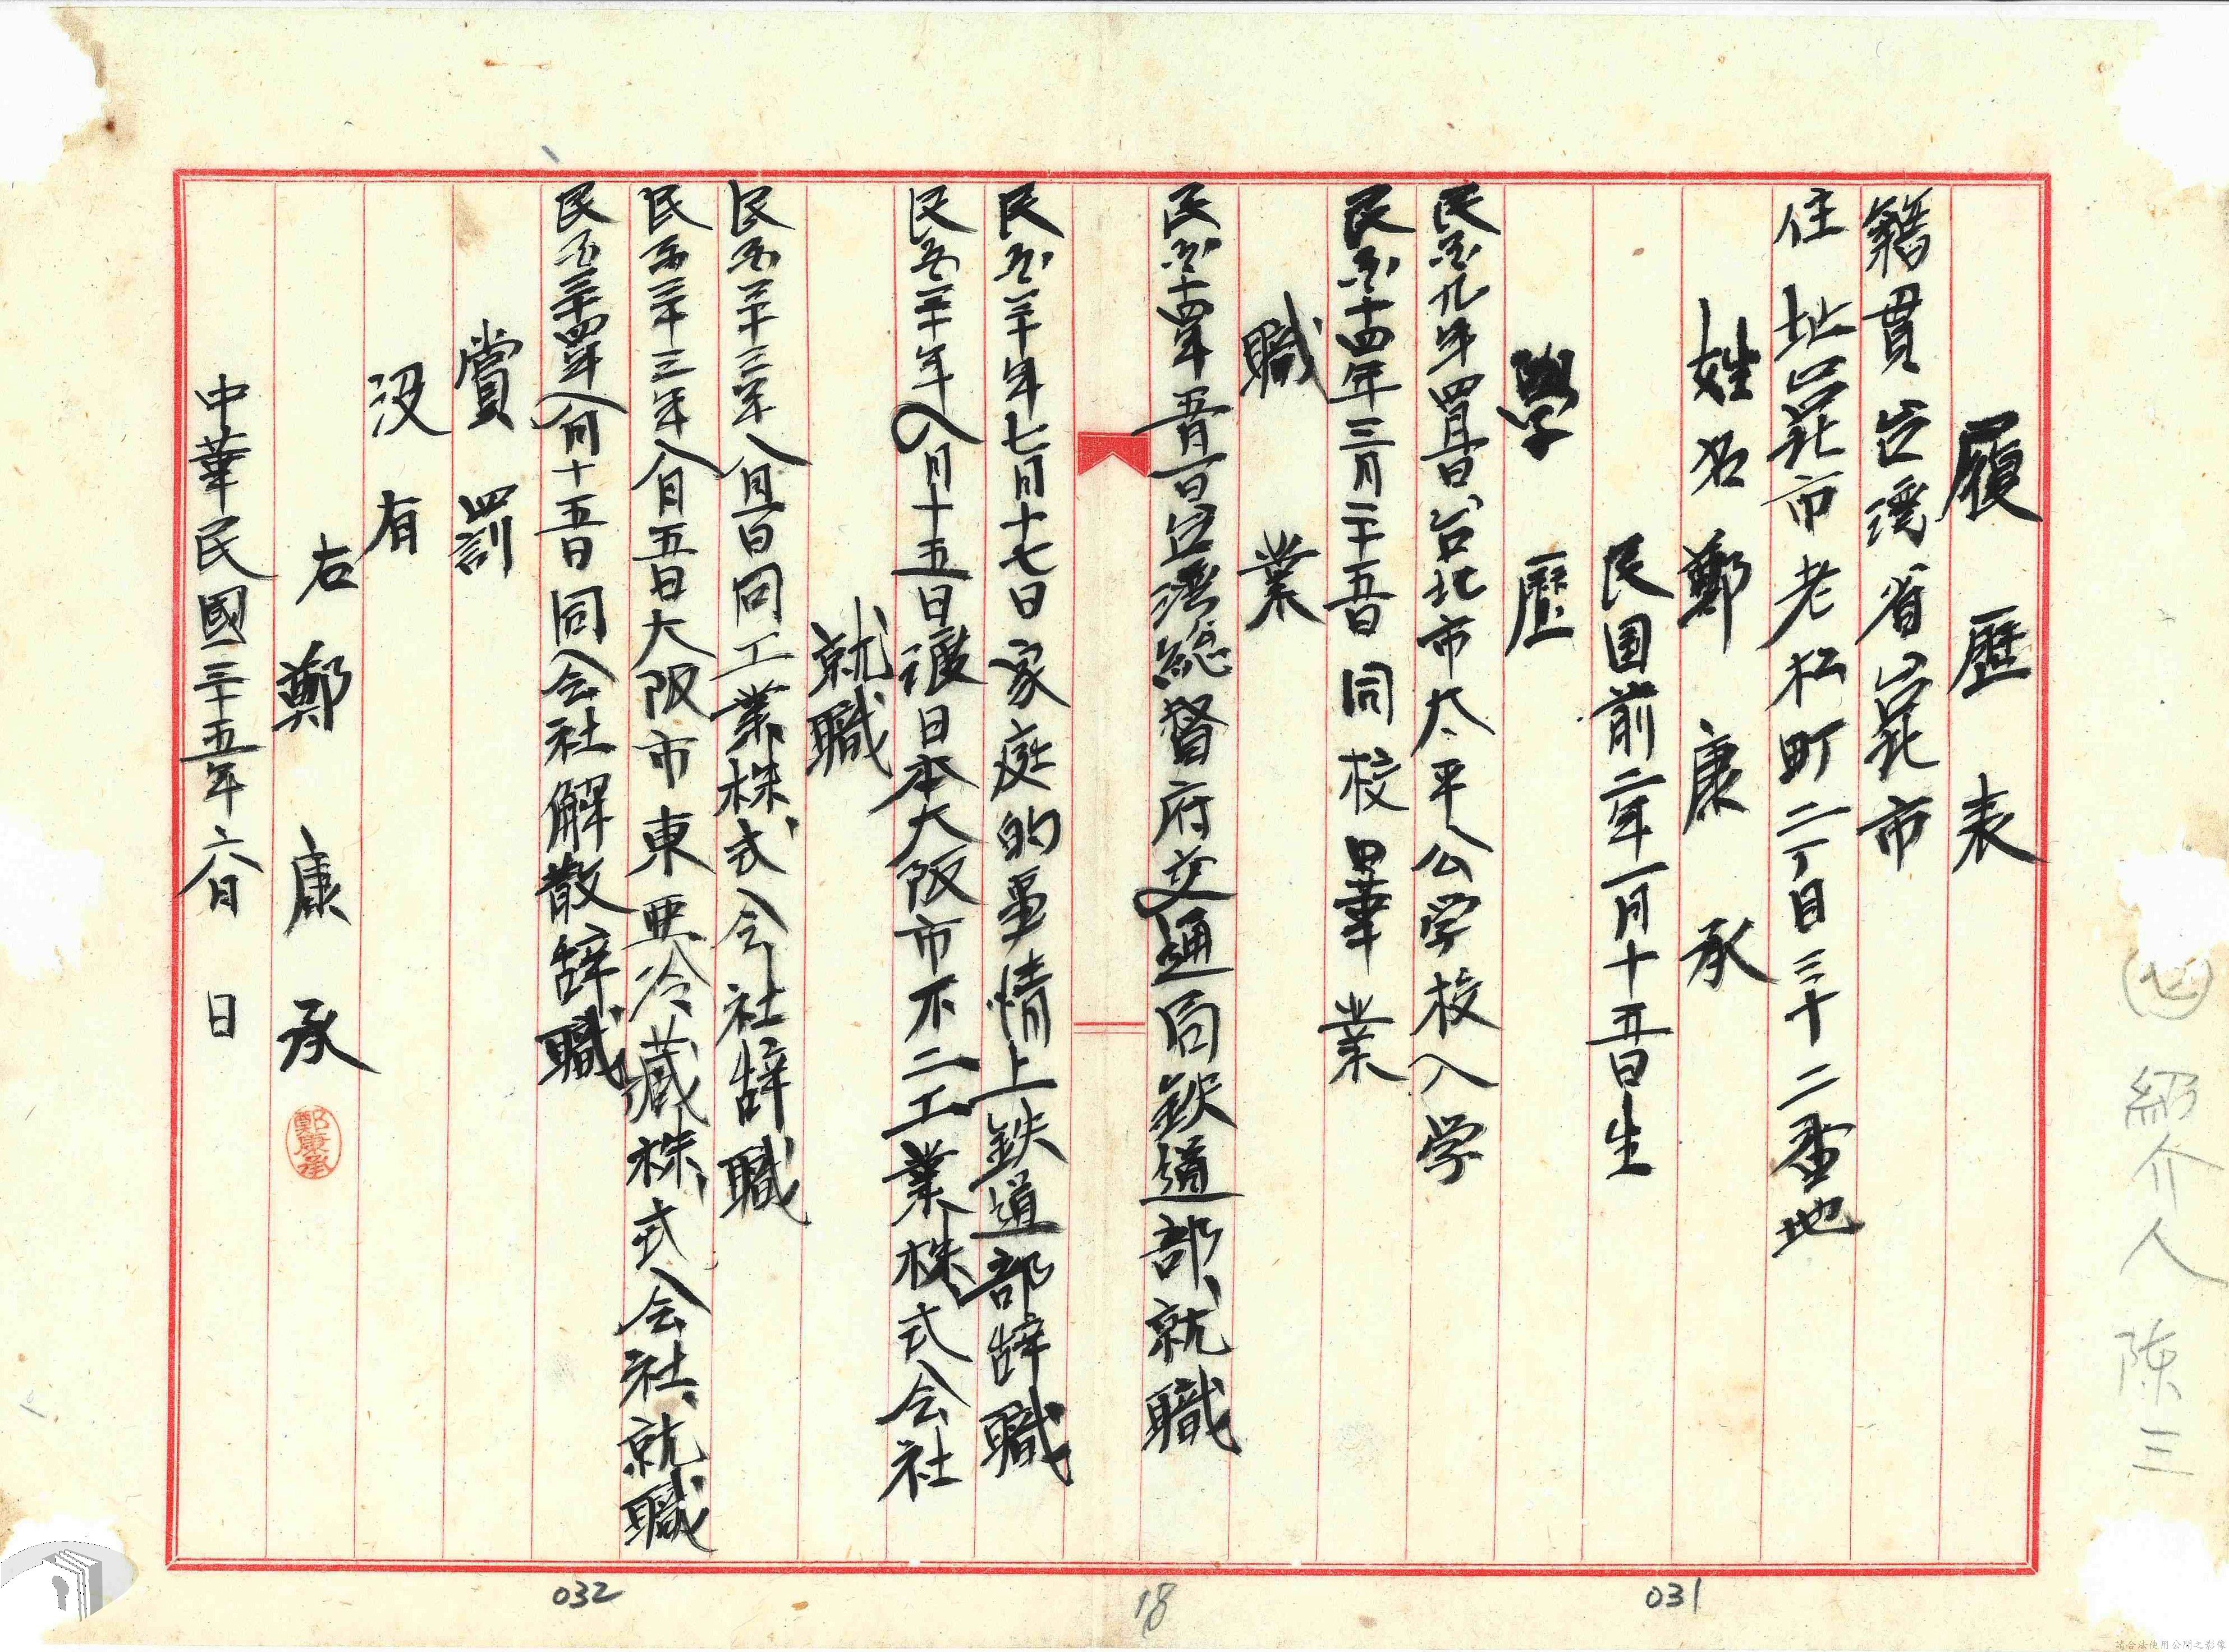 履歷表
籍貫 台湾省台北市
住址 台北市老松町二丁目三十二番地
姓名 鄭康承
民国前二年一月十五日生
學歷
民国九年四月一日台北市太平公学校入学
民国十四年三月二十五日同校畢業
職業
民国十四年五月一日台湾総督府交通局鉄道部、就職
民国二十年七月十七日家庭的事情上鉄道部辞職
民国二十年八月十五日渡日本大阪市不二工業株式会社
就職
民国三十三年八月一日同工業株式会社辞職
民国三十三年八月五日大阪市東亜冷蔵株式会社、就職
民国三十四年八月十五日同会社解散辞職
賞罰
没有
右 鄭康承
鄭康承
中華民國三十五年六月 日
紹介人 陳三
031
18
032
請合法使用公開之影像